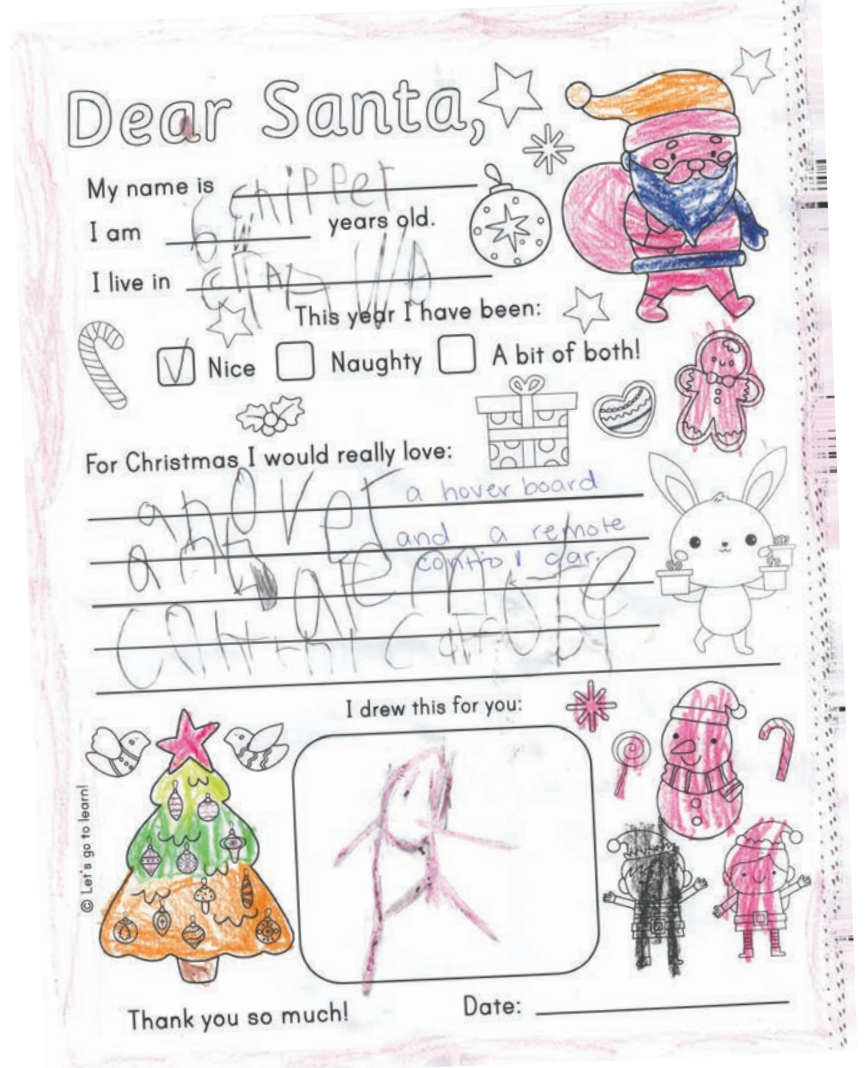 Dear Santa,
My name is Chipper
I am 6 years old.
I live in
This year I have been:
Nice Naughty A bit of both!
For Christmas I would really love:
a hover a hover board
and a remote
control car.
I drew this for you:
© Let's go to learn!
Thank you so much!
Date: